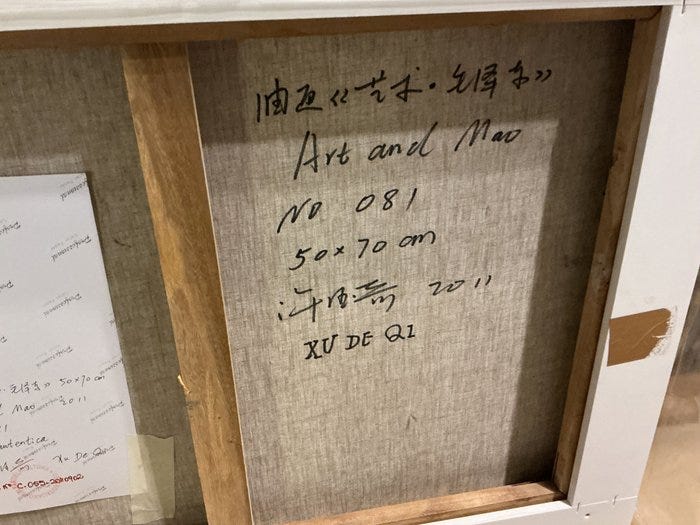 油画《艺术·毛泽东》
Art and Mao
NO 081
50×70 cm
许德奇 2011
XU DE QI
毛泽东》 50×70 cm
Mao 2011
autentica
Xu De Qi